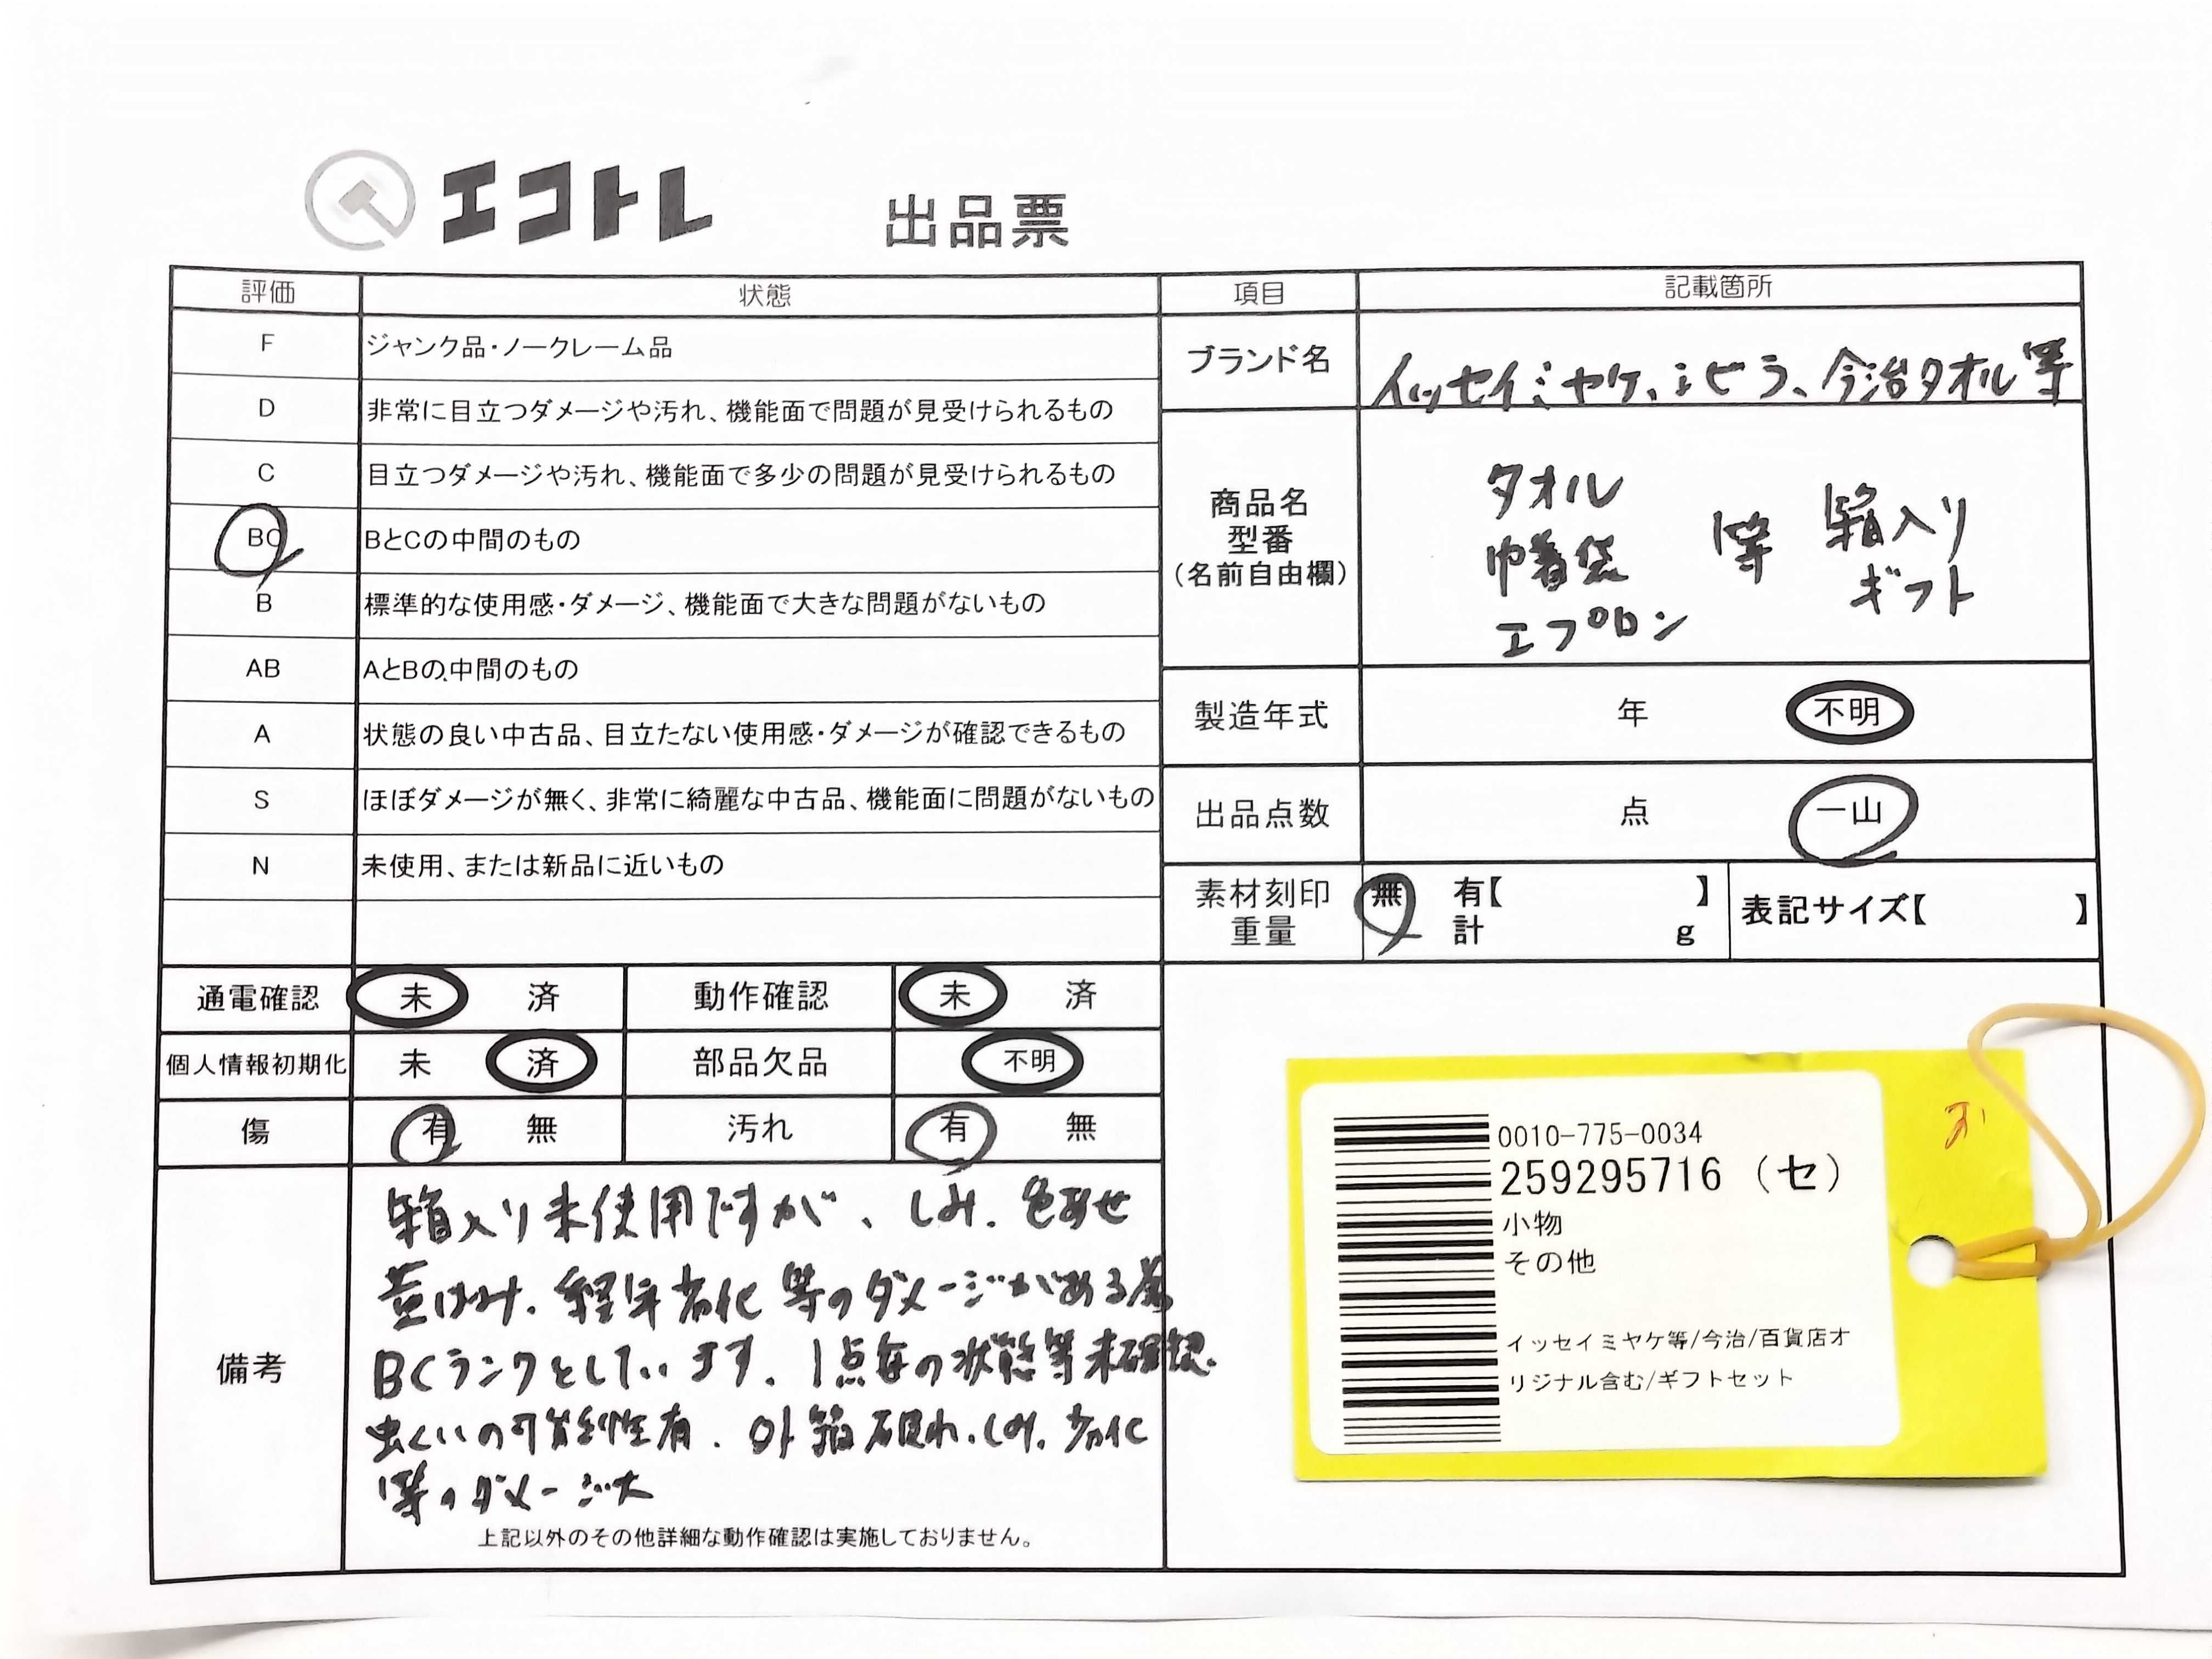 エコトレ 出品票
評価 状態 項目 記載箇所
F ジャンク品・ノークレーム品
D 非常に目立つダメージや汚れ、機能面で問題が見受けられるもの
C 目立つダメージや汚れ、機能面で多少の問題が見受けられるもの
BC BとCの中間のもの
B 標準的な使用感・ダメージ、機能面で大きな問題がないもの
AB AとBの中間のもの
A 状態の良い中古品、目立たない使用感・ダメージが確認できるもの
S ほぼダメージが無く、非常に綺麗な中古品、機能面に問題がないもの
N 未使用、または新品に近いもの
ブランド名 イッセイミヤケ、 今治タオル等
商品名
型番
(名前自由欄)
タオル
巾着袋 等 箱入り
エプロン ギフト
製造年式 年 不明
出品点数 点 一山
素材刻印 無 有【 】 表記サイズ【 】
重量 計 g
通電確認 未 済 動作確認 未 済
個人情報初期化 未 済 部品欠品 不明
傷 有 無 汚れ 有 無
備考
箱入り未使用ですが、しみ、色あせ
黄ばみ、経年劣化等のダメージがある為
BCランクとしています。1点毎の状態等未確認。
虫くいの可能性有。外箱破れ、しみ、劣化
等のダメージ大
上記以外のその他詳細な動作確認は実施しておりません。
0010-775-0034
259295716 (セ)
小物
その他
イッセイミヤケ等/今治/百貨店オ
リジナル含む/ギフトセット